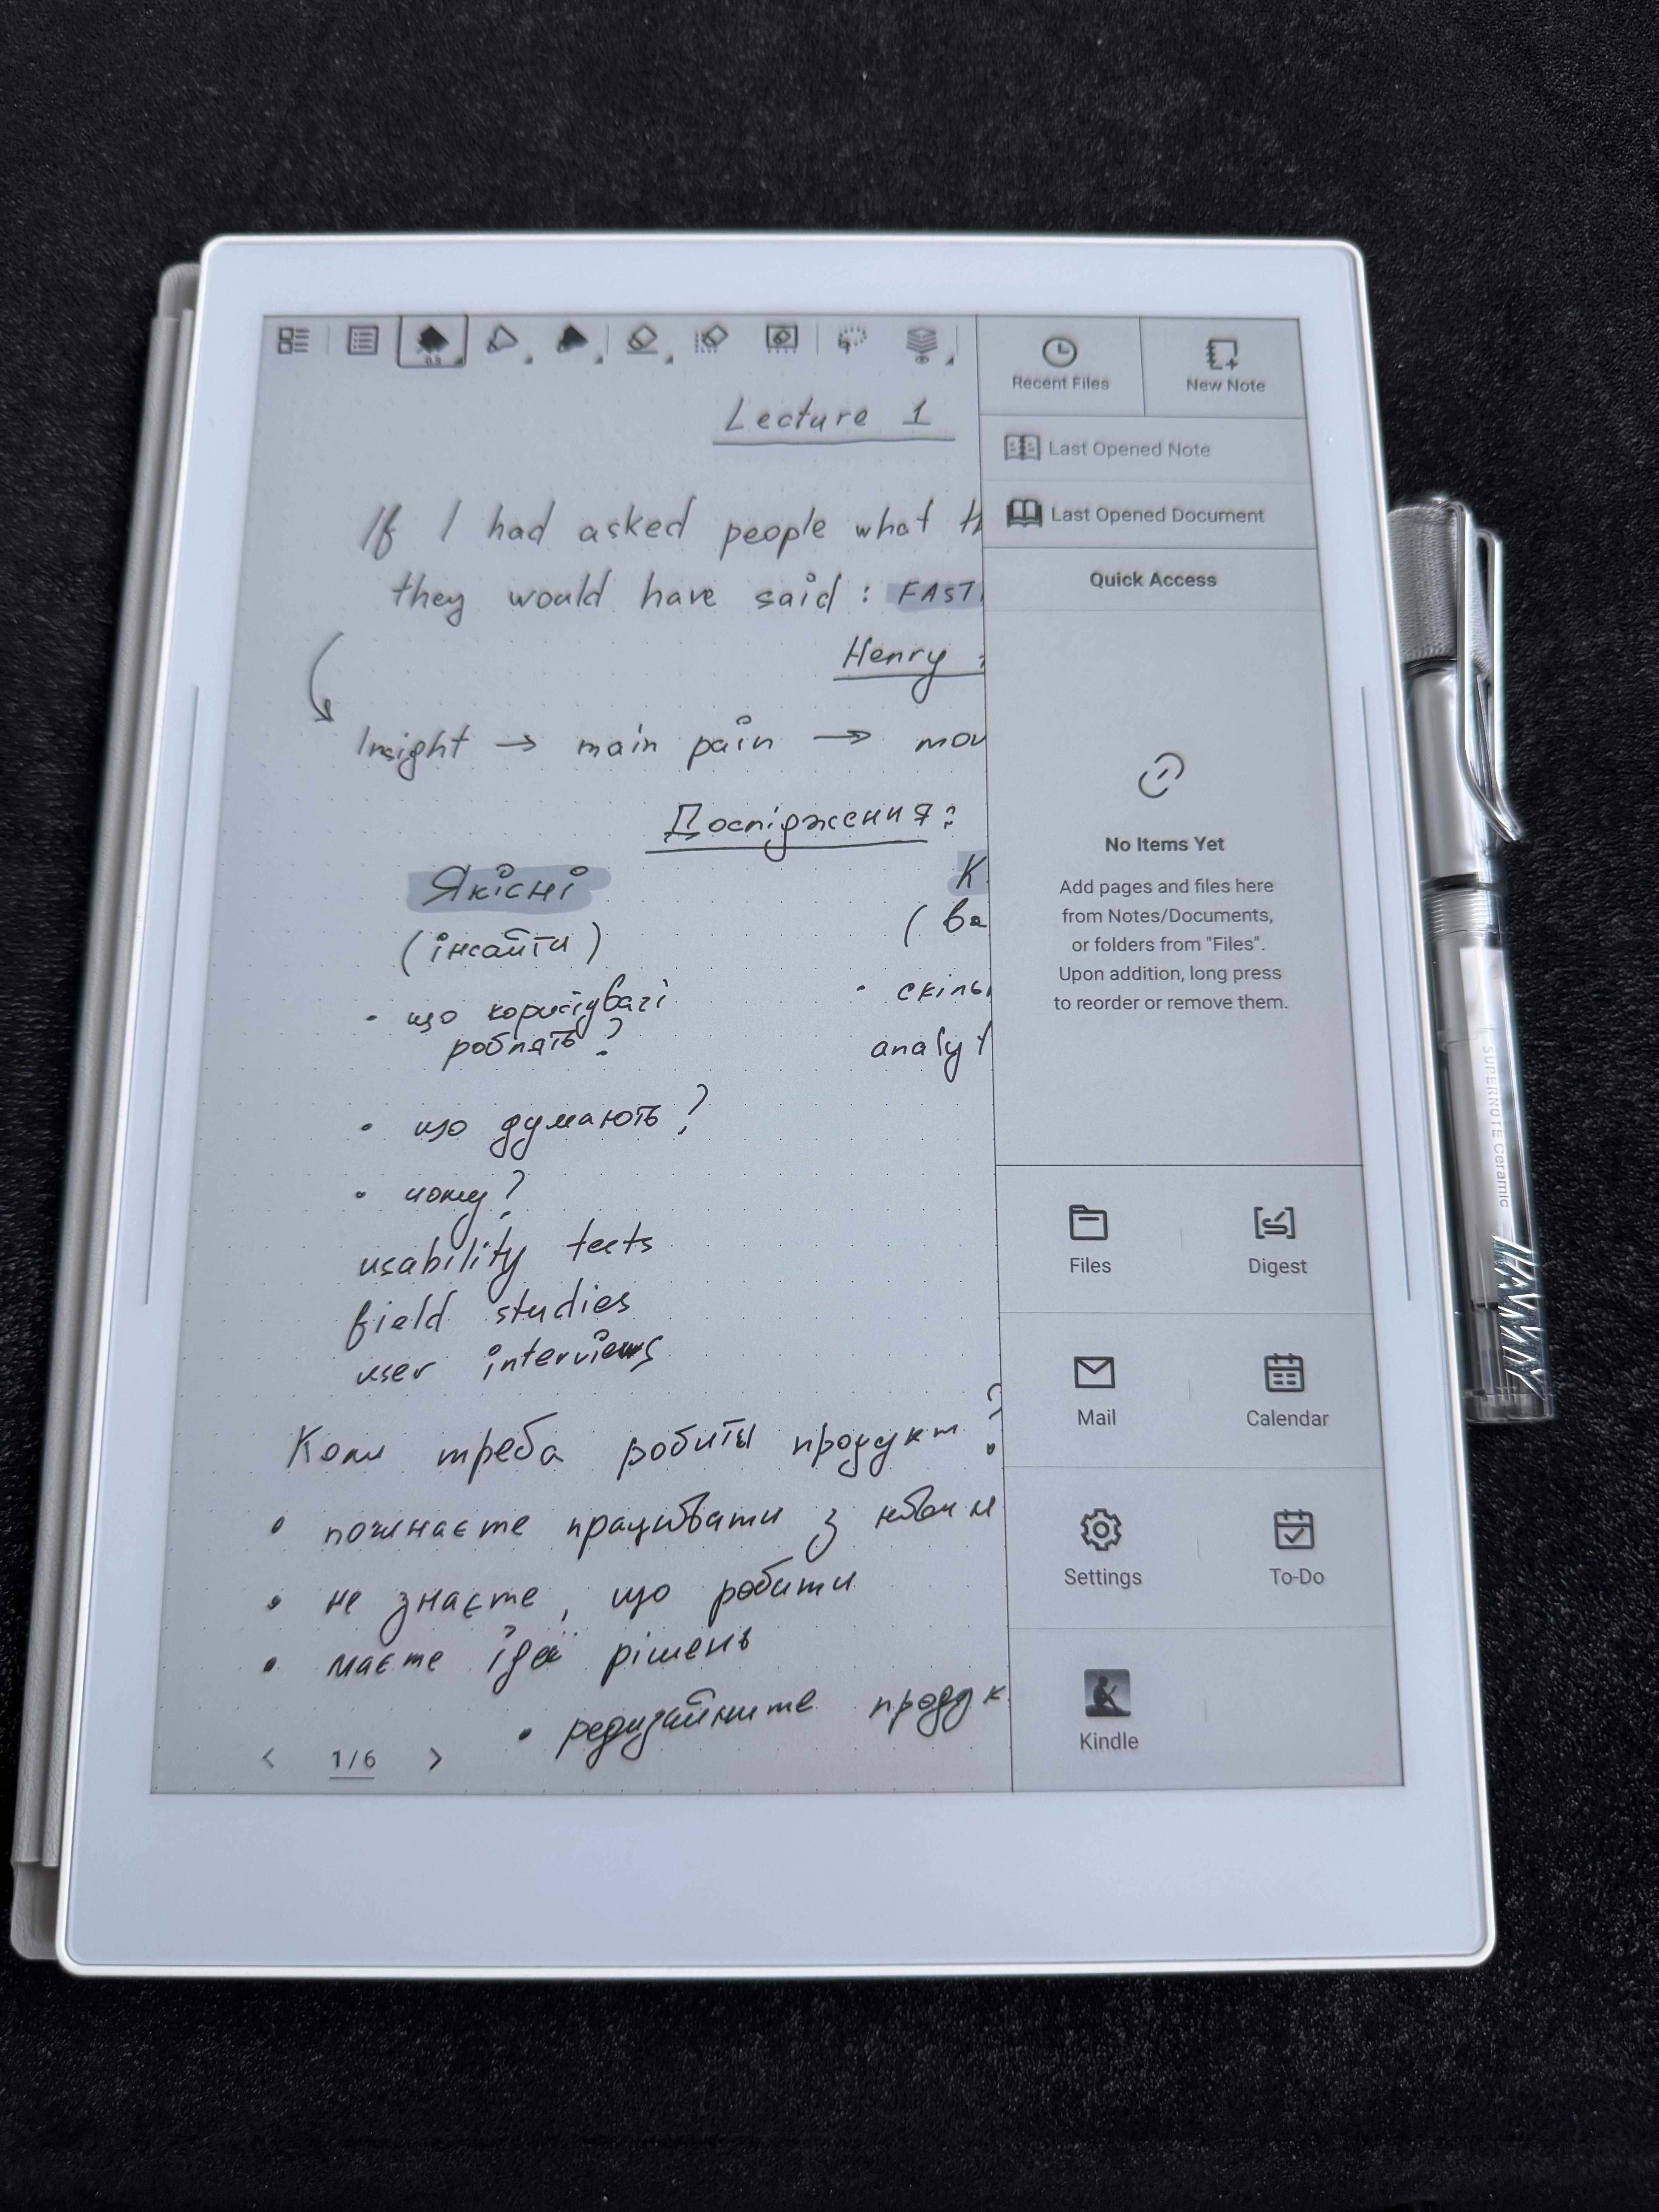 0.3
Recent Files
New Note
Lecture 1
Last Opened Note
Last Opened Document
Quick Access
If I had asked people what th
they would have said : FAST
Henry
Insight → main pain → mov
Дослідження:
Якісні
К
(інсайти)
(ва
• що користувачі
роблять?
• скіль
analyt
• що думають?
• чому?
usability tests
field studies
user interviews
Коли треба робити продукт?
• починаєте працювати з новим
• не знаєте, що робити
• маєте ідеї рішень
• редизайните продук
< 1/6 >
No Items Yet
Add pages and files here
from Notes/Documents,
or folders from "Files".
Upon addition, long press
to reorder or remove them.
Files
Digest
Mail
Calendar
Settings
To-Do
Kindle
SUPERNOTE Ceramic